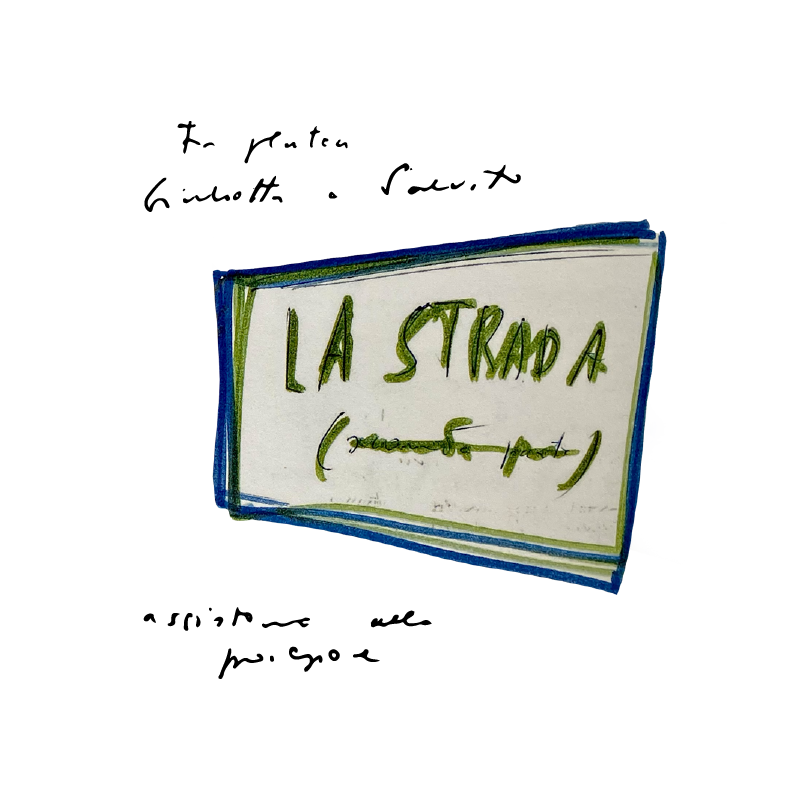 In platea
Giulietta e Salvito
LA STRADA
(seconda parte)
assistono alla
proiezione